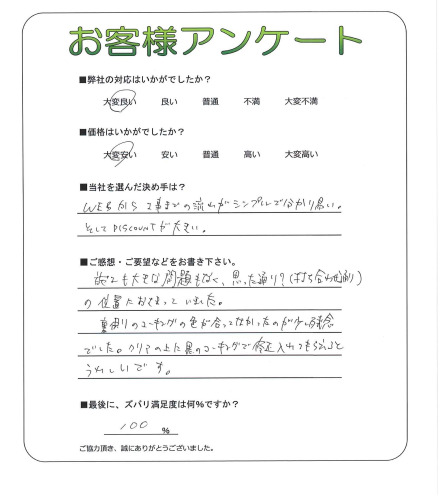 お客様アンケート
■弊社の対応はいかがでしたか？
大変良い 良い 普通 不満 大変不満
■価格はいかがでしたか？
大変安い 安い 普通 高い 大変高い
■当社を選んだ決め手は？
WEBから工事までの流れがシンプルで分かり易い。
そしてDISCOUNTが大きい。
■ご感想・ご要望などをお書き下さい。
も大きな問題もなく、思った通り？(打ち合わせ通り)
の位置におさまっていました。
裏周りのコーキングの色が合ってなかったのが少し残念
でした。クリアの上に黒のコーキングで修正入れてもらえると
うれしいです。
■最後に、ズバリ満足度は何%ですか？
100 %
ご協力頂き、誠にありがとうございました。